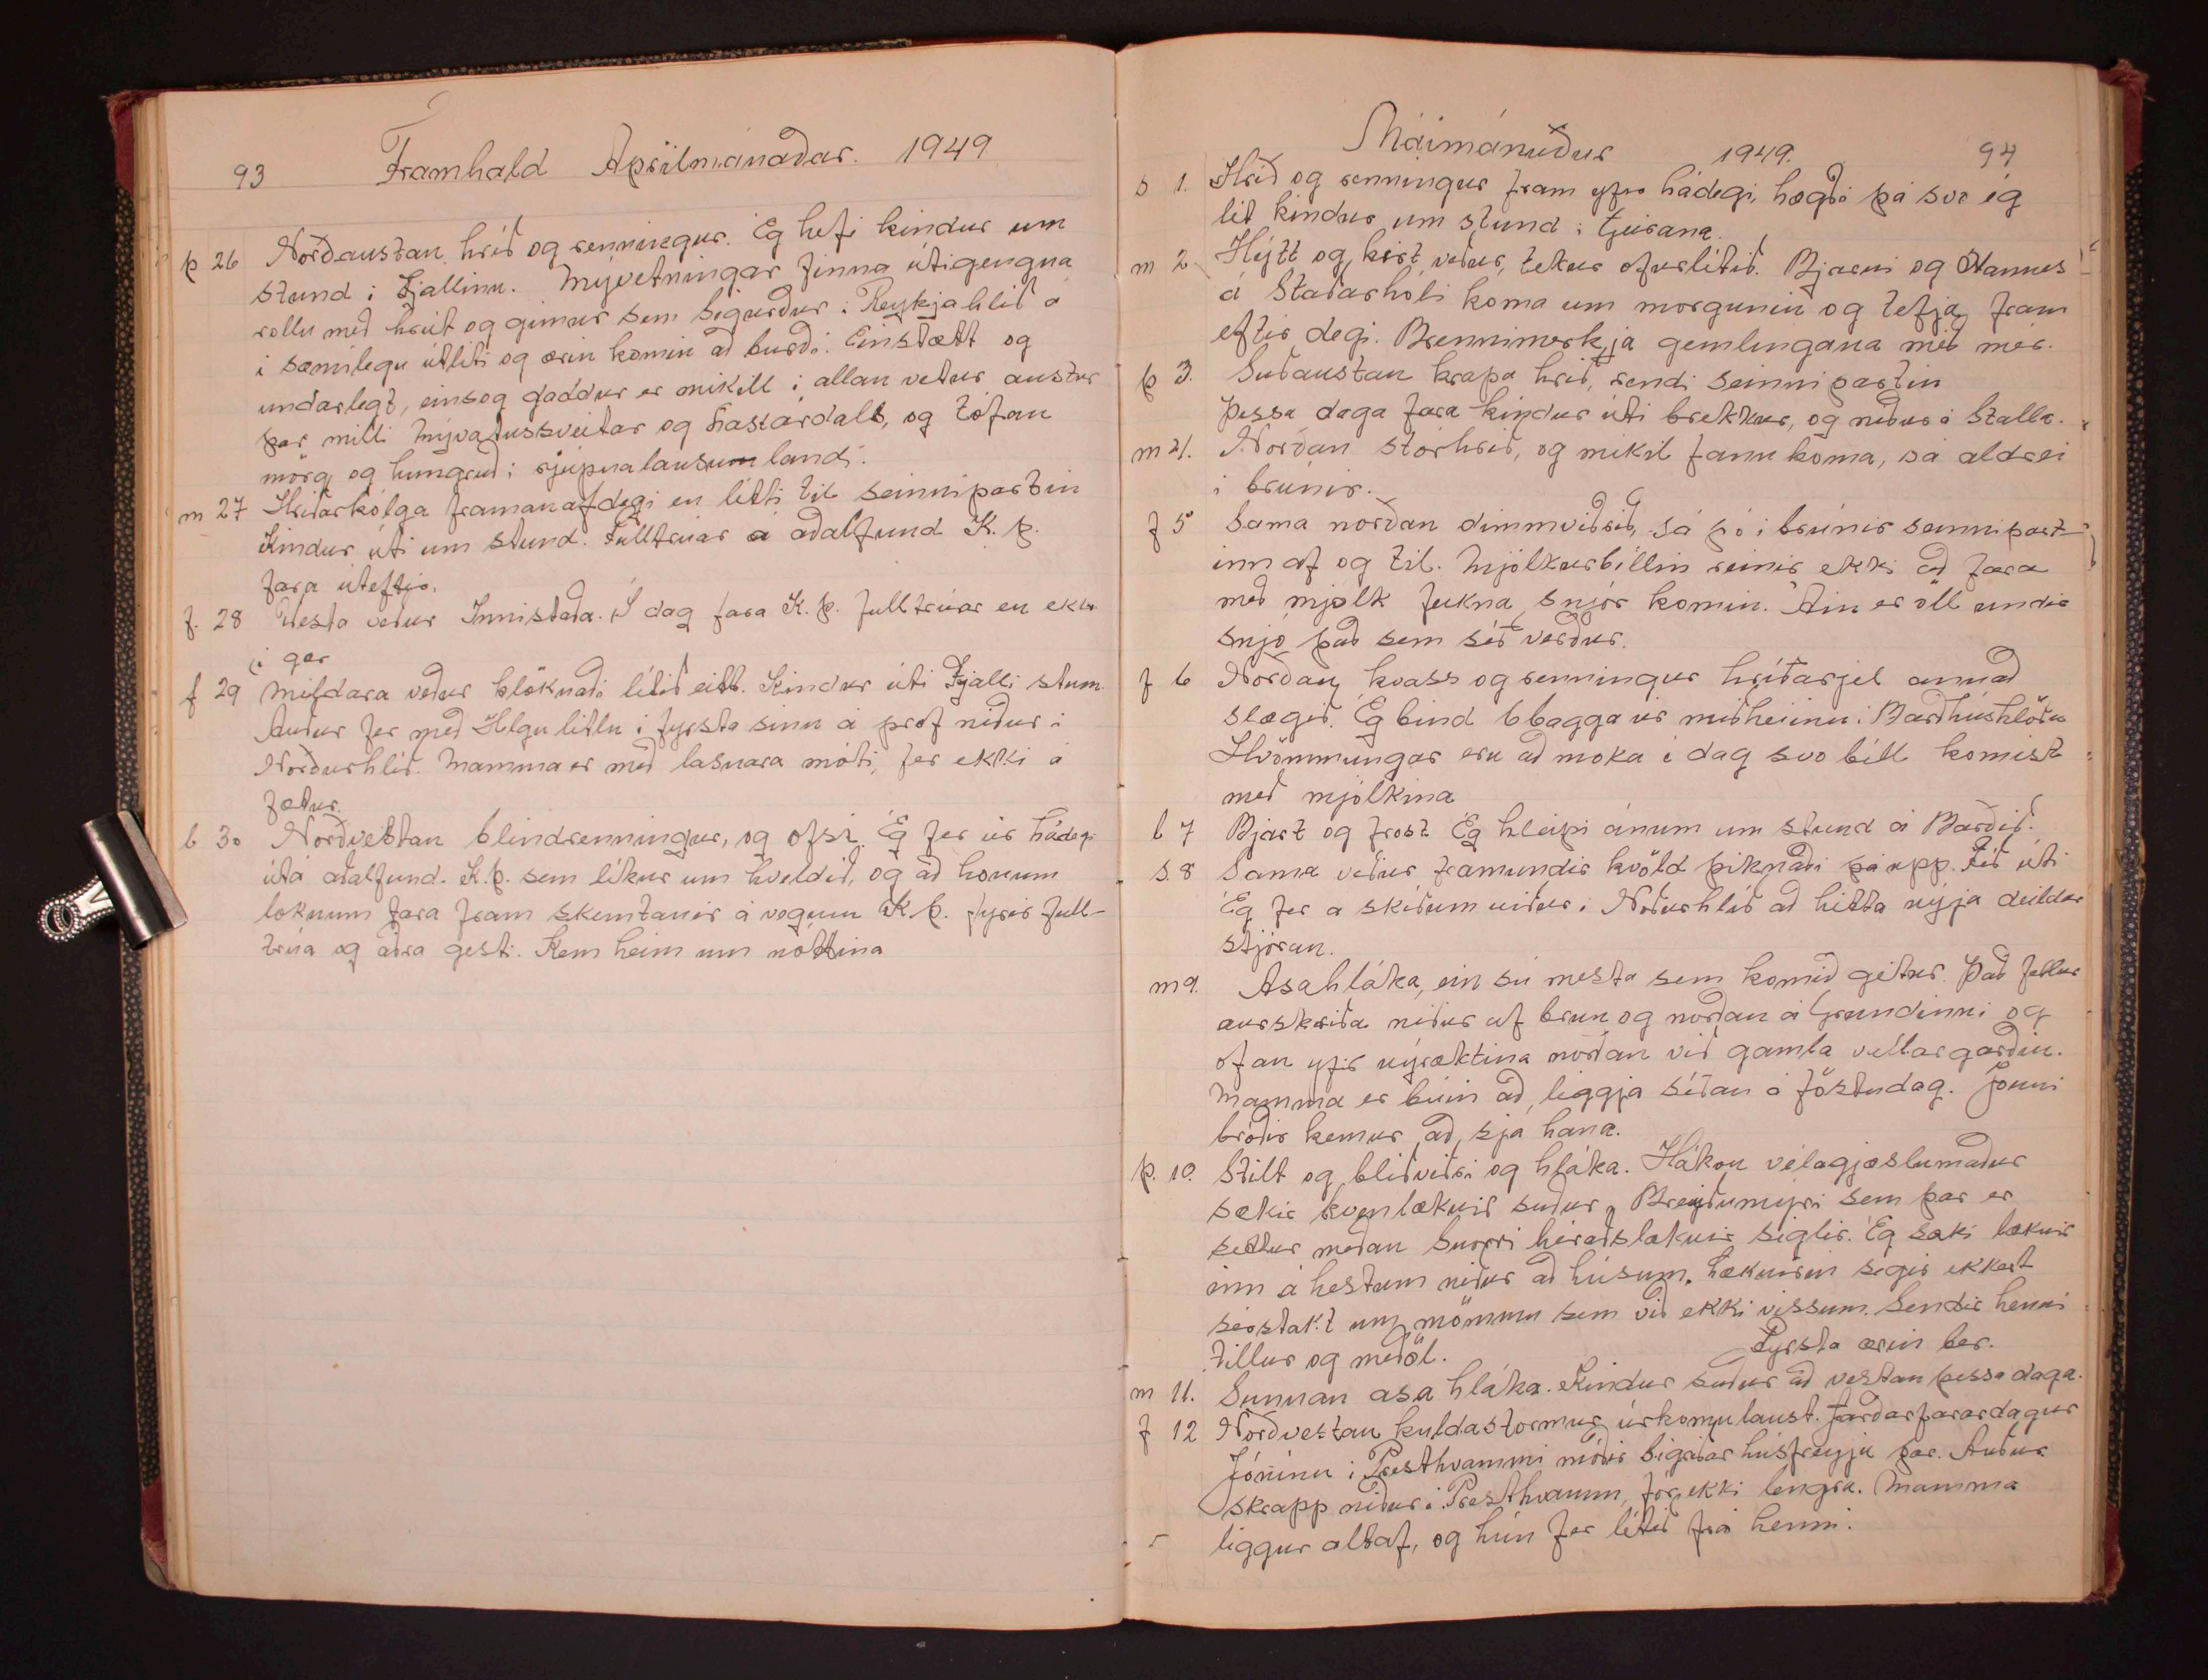 93 Framhald Aprílmánaðar. 1949
þ 26 Norðaustan hríð og renningur. Eg hefi kindur um
stund i Fjallinu. Mývetningar finna útigengna
rollu með hrút og gimur sem Sigurður i Reykjahlið á
i sæmilegu útliti og ærin komin að burði. Einstætt og
undarlegt, einsog gaddur er mikill i allan vetur austur
þar milli Mývatnssveitar og Laxárdals, og tófan
mörg og hungruð i rjúpnalausum landi.
m 27 Hríðarkólga framanafdegi en létti til seinnipartin
Kindur úti um stund. Fulltrúar á aðalfund K. þ.
fara úteftir.
f. 28 Vesta veður Innistaða. Í dag fara K. þ. fulltrúar en ekki
i gær
f 29 Mildara veður blöknaði lítið eitt. Kindur úti Fjalli stum.
Auður fer með Helgu litlu i fyrsta sinn á próf niður i
Norðurhlið. Mamma er með lasnara móti, fer ekki á
fætur.
l 30 Norðvestan blindrenningur, og ofsi. Eg fer úr hádegi
útá aðalfund. K.þ. sem líkur um kveldið, og að honum
loknum fara fram skemtanir á vegum K þ. fyrir full-
trúa og aðra gesti. Kem heim um nóttina
Máimánuður 1949. 94
s 1. Hríð og renningur fram yfir hádegi, hægði þá svo ég
lét kindur um stund i Geirana.
m 2 Hýtt og kirt veður, tekur ofurlítið. Bjarni og Hannes
á Staðarhóli koma um morgunin og tefja fram
eftir degi. Brennimerkja gemlingana með mér.
þ 3. Suðaustan krapa hríð, rendi seinnipartin
Þessa daga fara kindur úti brekkur, og niður á Stalla.
m 4. Norðan stórhríð, og mikil fannkoma, sá aldrei
i brúnir.
f 5 Sama norðan dimmviðrið, sá þó i brúnir seinnipart-
inn af og til. Mjólkurbíllin reinir ekki að fara
með mjólk feikna snjór komin. Áin er öll undir
snjó það sem séð verður.
f 6 Norðan kvass og renningur hríðarjel annað
slægið. Eg bind 6 bagga úr miðheiinu i Barðhúshlöðu
Hvömmungar eru að moka i dag svo bíll komist
með mjólkina
l 7 Bjart og frost Eg hleipi ánum um stund á Barðið.
s. 8 Sama veður framundir kvöld þiknaði þá upp. Féð úti
Ég fer a skíðum niður i Norðurhlið að hitta nýja deildar
stjóran.
m 9. Asahláka, ein sú mesta sem komið getur. Það fellur
aurskriða niður af brún og norðan á Grundinni og
ofan yfir nýræktina norðan við gamla vallargarðin.
Mamma er búin að liggja síðan á föstudag. Jonni
bróðir kemur að sjá hana.
þ. 10. Stilt og blíðviðri og hláka. Hákon vélagjæslumaður
sækir kvenlæknir suður, Breiðumýri sem þar er
settur meðan Snorri héraðslæknir siglir. Ég sæki læknir
inn á hestum niður að húsum. Læknirin segir ekkert
sérstakt um mömmu sem við ekki vissum. Sendir henni
tillur og meðöl. Fyrsta ærin ber.
m 11. Sunnan asa hláka. Kindur suður að vestan þessa daga.
f 12 Norðvestan kuldastormur úrkomulaust. Jarðarfarardagur
Jónínu i Presthvammi móðir Sigríðar húsfreyju þar. Auður
skrapp niður i Presthvamm, fór ekki lengra. Mamma
liggur altaf, og hún fer lítið frá henni.